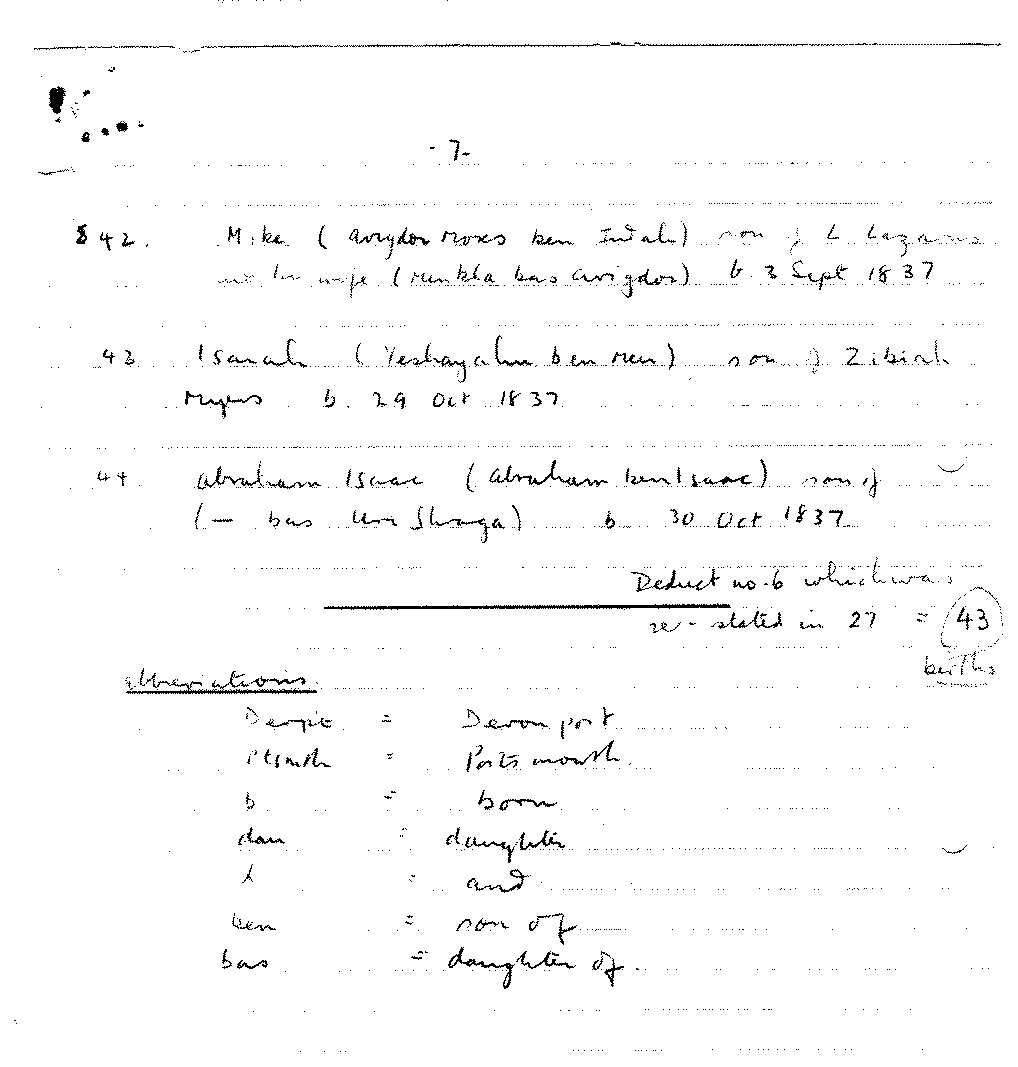 - 7 -
42. Mike (Avigdor Moses ben Judah) son of L Lazarus
and his wife (Minkla bas Avigdor) b. 3 Sept 1837
43 Isaiah (Yeshayahu ben Meir) son of
Myers b. 29 Oct 1837
44 Abraham Isaac (Abraham ben Isaac) son of
(— bas Uri Shraga) b 30 Oct 1837
Deduct no. 6 which was
re-stated in 27 = 43
births
abbreviations.
Devpt = Devonport
Ptsmth = Portsmouth
b = born
dau = daughter
& = and
ben = son of
bas = daughter of.